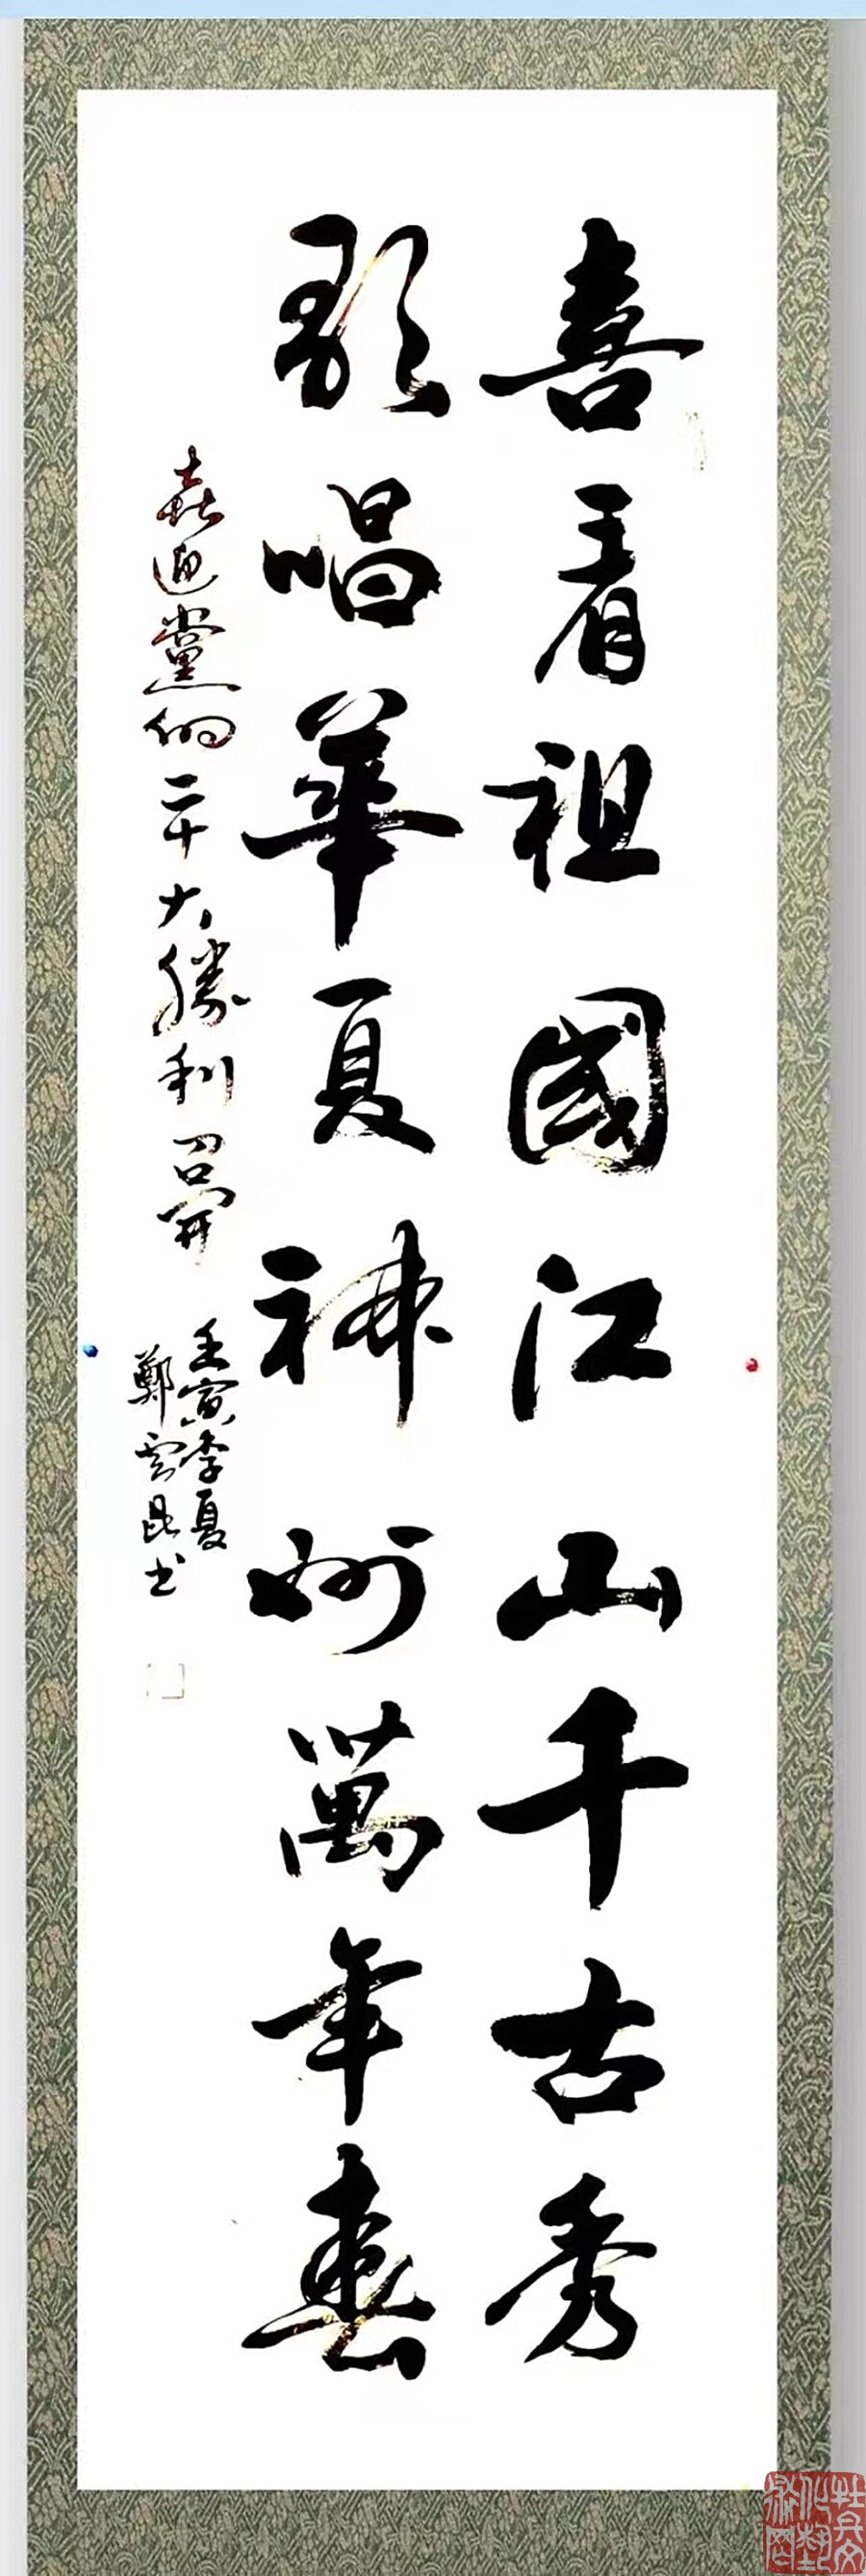 喜看祖國江山千古秀
歌唱華夏神州萬年春
喜迎黨的二十大勝利召開
壬寅季夏
鄭雲昆书
牡丹文化藝術网